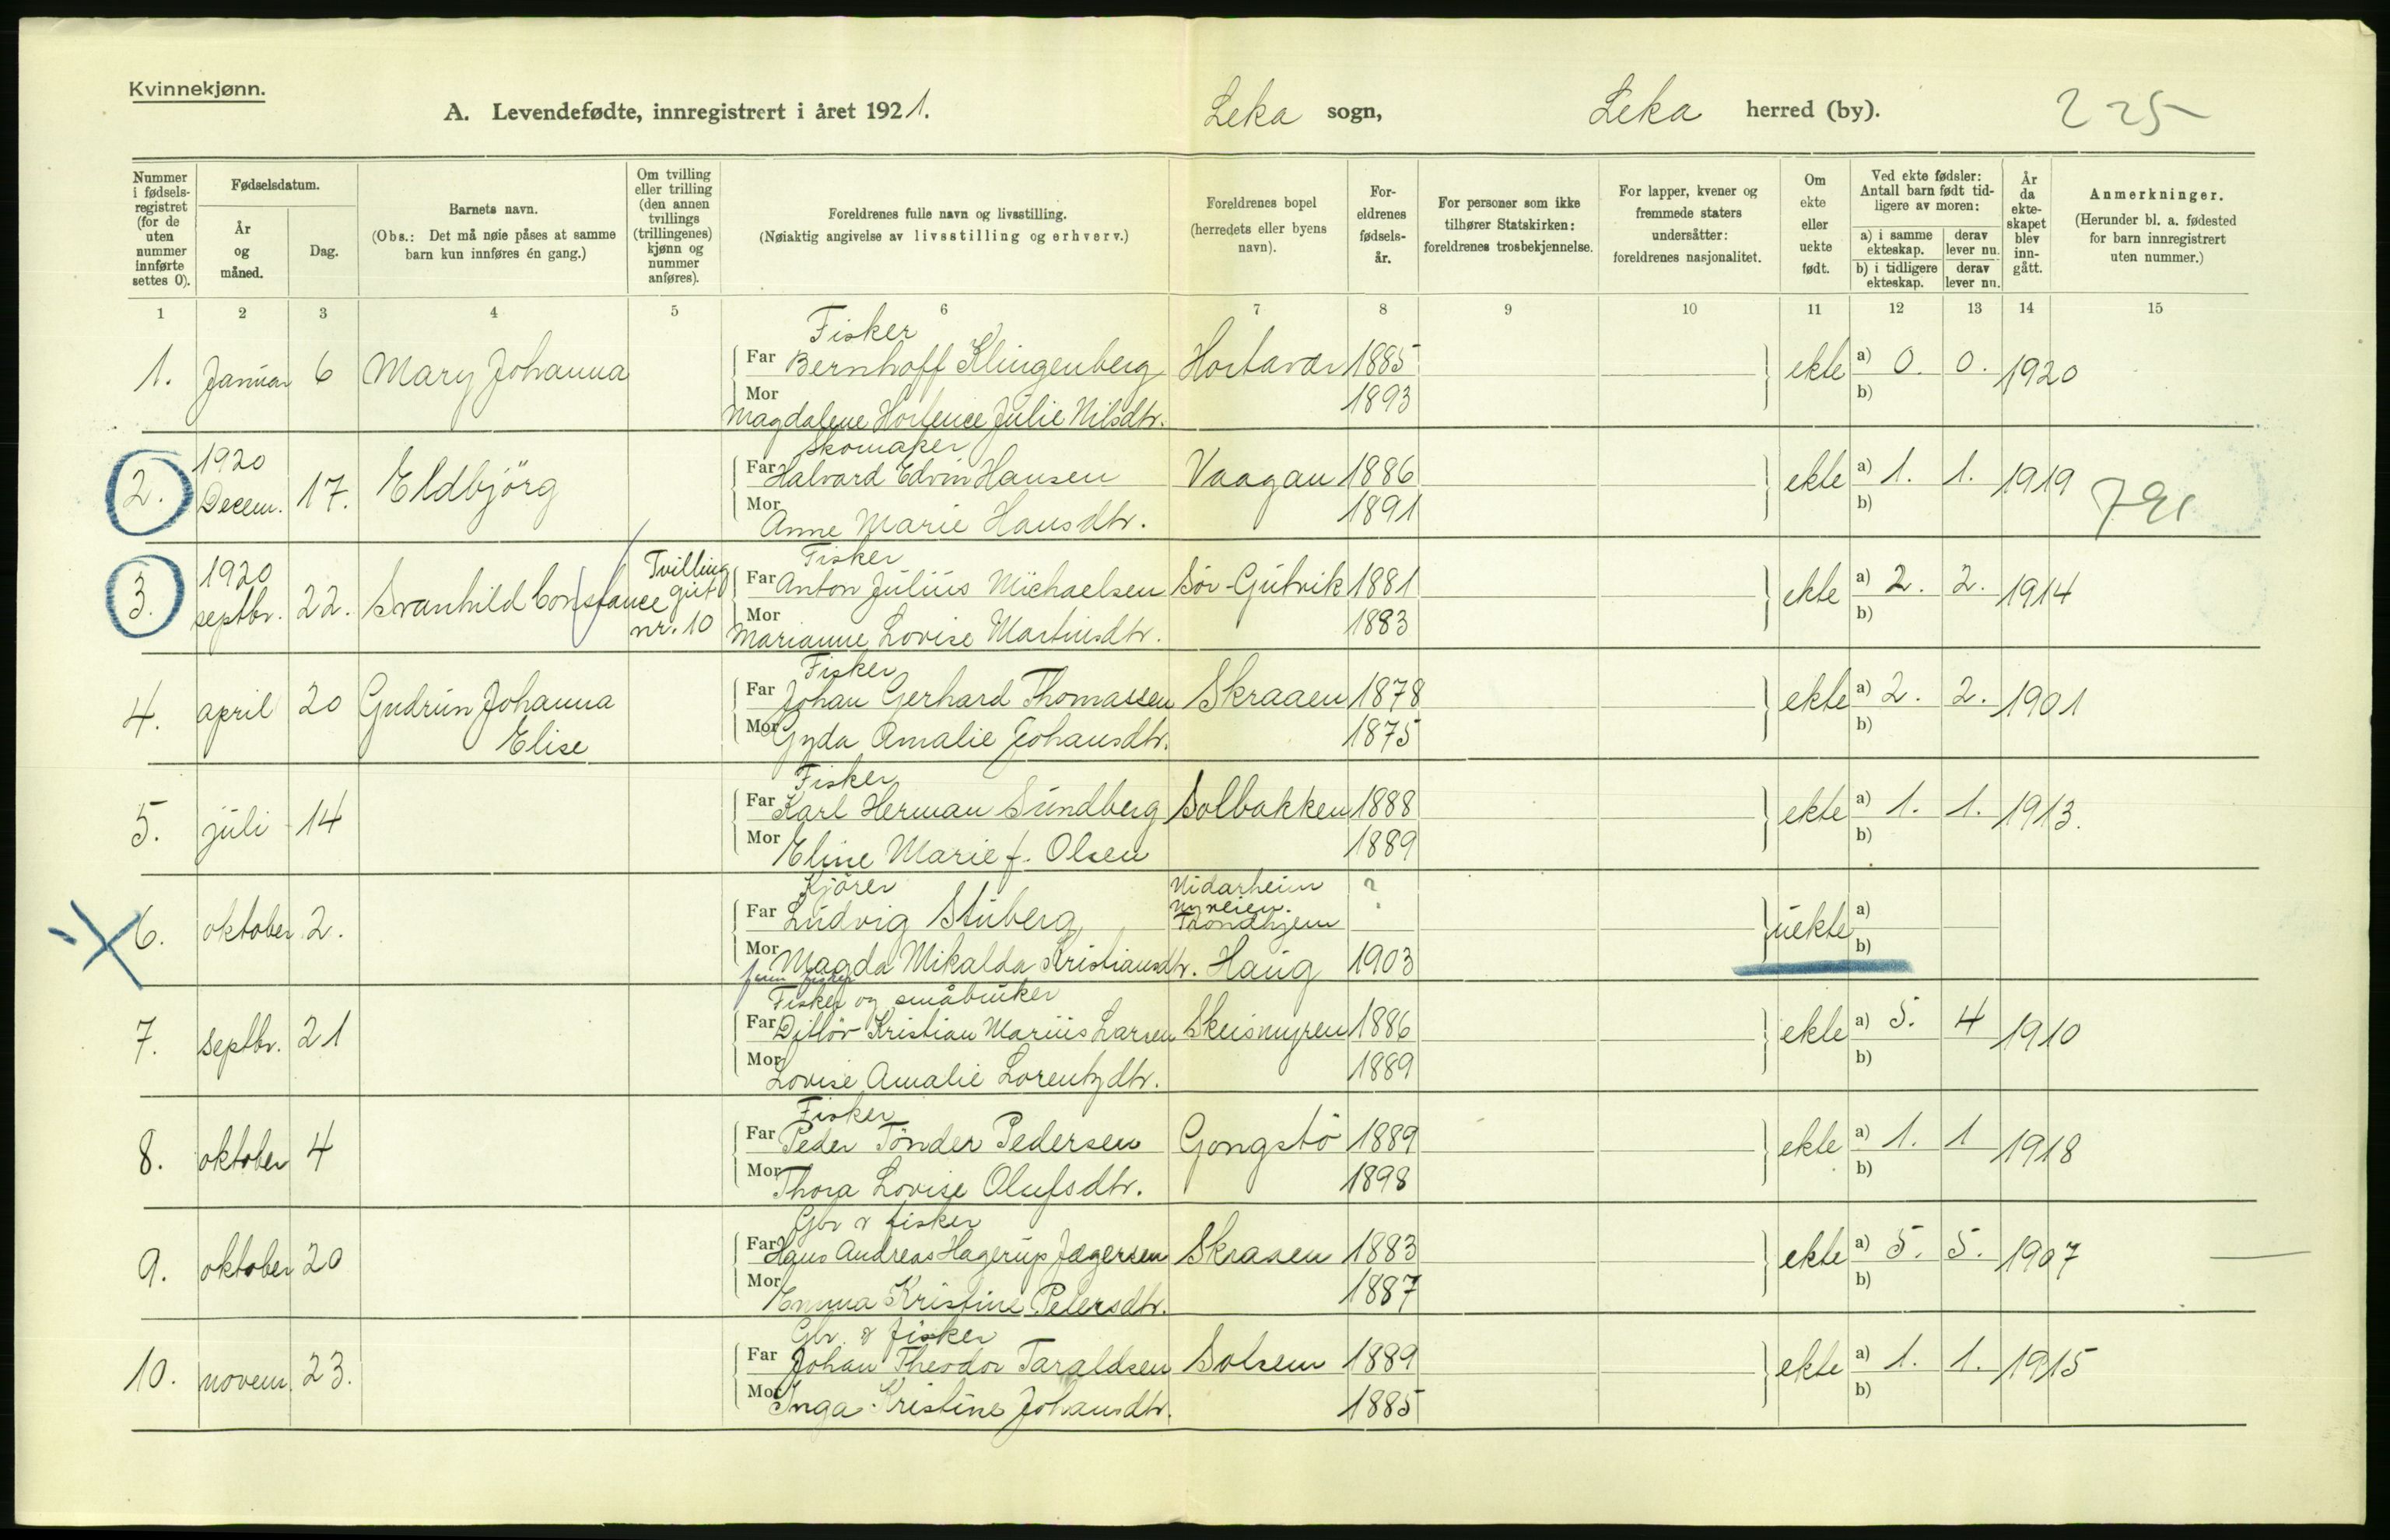 Kvinnekjønn.
A. Levendefødte, innregistrert i året 1921. Leka sogn, Leka herred (by). 225
Nummer i fødselsregistret (for de uten nummer innførte settes 0).
Fødselsdatum.
År og måned.
Dag.
Barnets navn.
(Obs.: Det må nøie påses at samme barn kun innføres én gang.)
Om tvilling eller trilling (den annen tvillings (trillingenes) kjønn og nummer anføres).
Foreldrenes fulle navn og livsstilling.
(Nøiaktig angivelse av livsstilling og erhverv.)
Foreldrenes bopel (herredets eller byens navn).
Foreldrenes fødselsår.
For personer som ikke tilhører Statskirken: foreldrenes trosbekjennelse.
For lapper, kvener og fremmede staters undersåtter: foreldrenes nasjonalitet.
Om ekte eller uekte født.
Ved ekte fødsler: Antall barn født tidligere av moren:
a) i samme ekteskap. derav lever nu.
b) i tidligere ekteskap. derav lever nu.
År da ekteskapet blev inngått.
Anmerkninger.
(Herunder bl. a. fødested for barn innregistrert uten nummer.)
1 2 3 4 5 6 7 8 9 10 11 12 13 14 15
Fisker
1. Januar 6 Mary Johanna Far Bernhoff Klingenberg Hortavær 1885 ekte a) 0. 0. 1920
Mor Magdalene Hortence Julie Nilsdtr. 1893 b)
Skomaker
2. 1920 Decem. 17. Eldbjörg Far Halvard Edvin Hansen Vaagan 1886 ekte a) 1. 1. 1919
Mor Anne Marie Hansdtr. 1891 b)
Fisker
3. 1920 septbr. 22. Svanhild Constance Tvilling gut nr. 10 Far Anton Julius Michaelsen Sör-Gutvik 1881 ekte a) 2. 2. 1914
Mor Marianne Lovise Martinsdtr. 1883 b)
Fisker
4. april 20 Gudrun Johanna Elise Far Johan Gerhard Thomassen Skraaen 1878 ekte a) 2. 2. 1901
Mor Gyda Amalie Johansdtr. 1875 b)
Fisker
5. juli 14 Far Karl Herman Sundberg Solbakken 1888 ekte a) 1. 1. 1913.
Mor Eline Marie f. Olsen 1889 b)
Kjörer
6. oktober 2. Far Ludvig Stuberg Nidarheim Nyveien. Trondhjem ? uekte a)
Mor Magda Mikalda Kristiansdtr. Haug 1903 b)
Fisker og småbruker
7. septbr. 21 Far Ditlöv Kristian Marius Larsen Skeismyren 1886 ekte a) 5. 4 1910
Mor Lovise Amalie Lorentzdtr. 1889 b)
Fisker
8. oktober 4 Far Peder Tönder Pedersen Gongstö 1889 ekte a) 1. 1 1918
Mor Thora Lovise Olufsdtr. 1898 b)
Gbr & fisker
9. oktober 20 Far Hans Andreas Hagerup Jægersen Skraaen 1883 ekte a) 5. 5. 1907
Mor Emma Kristine Petersdtr. 1887 b)
Gbr. & fisker
10. novem. 23. Far Johan Theodor Taraldsen Solsem 1889 ekte a) 1. 1. 1915
Mor Inga Kristine Johansdtr. 1885 b)